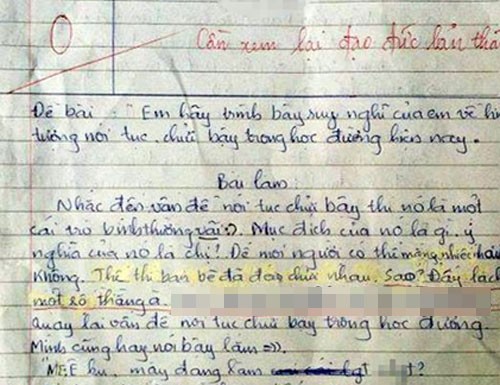 0
Cần xem lại đạo đức bản thâ
Đề bài : "Em hãy trình bày suy nghĩ của em về hiệ
tượng nói tục, chửi bậy trong học đường hiện nay.
Bài làm
Nhắc đến vấn đề nói tục chửi bậy thì nó là một
cái trò bình thường vãi :). Mục đích của nó là gì, ý
nghĩa của nó là chi! Để mọi người có thể mắng nhiếc hay
không. Thế thì bạn bè đã đóa chửi nhau. Sao? Đấy là cá
một số thằng a.
quay lại vấn đề nói tục chửi bậy trong học đường
Mình cũng hay nói bậy lắm =)).
"M.E ku, mày đang làm t?